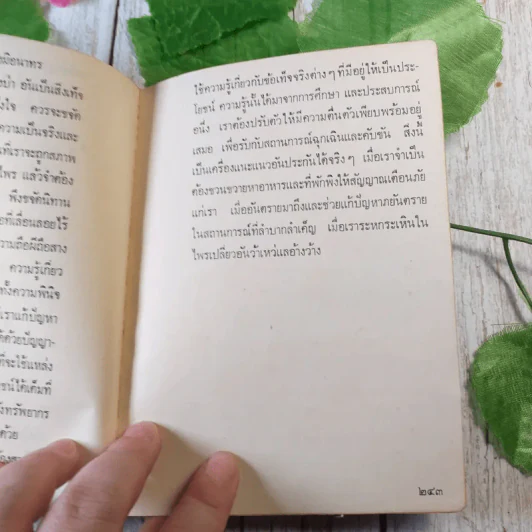 ป่า อันเป็นสิ่งเท็จ
ควรจะขจัด
ความเป็นจริงและ
ที่เราจะถูกสภาพ
ไพร แล้วจำต้อง
พึงขจัดนิทาน
ที่เลื่อนลอยไร้
ความรู้เกี่ยว
ทั้งความพินิจ
เราแก้ปัญหา
ด้วยปัญญา-
ที่จะใช้แหล่ง
ได้เต็มที่
ทรัพยากร
ด้วย
ใช้ความรู้เกี่ยวกับข้อเท็จจริงต่าง ๆ ที่มีอยู่ให้เป็นประ-
โยชน์ ความรู้นั้นได้มาจากการศึกษา และประสบการณ์
อนึ่ง เราต้องปรับตัวให้มีความตื่นตัวเพียบพร้อมอยู่
เสมอ เพื่อรับกับสถานการณ์ฉุกเฉินและคับขัน สิ่งนี้
เป็นเครื่องแนะแนวอันประกันได้จริง ๆ เมื่อเราจำเป็น
ต้องขวนขวายหาอาหารและที่พักพิงให้สัญญาณเตือนภัย
แก่เรา เมื่ออันตรายมาถึงและช่วยแก้ปัญหาภยันตราย
ในสถานการณ์ที่ลำบากลำเค็ญ เมื่อเราระหกระเหินใน
ไพรเปลี่ยวอันว้าเหว่แลอ้างว้าง
๒๔๓